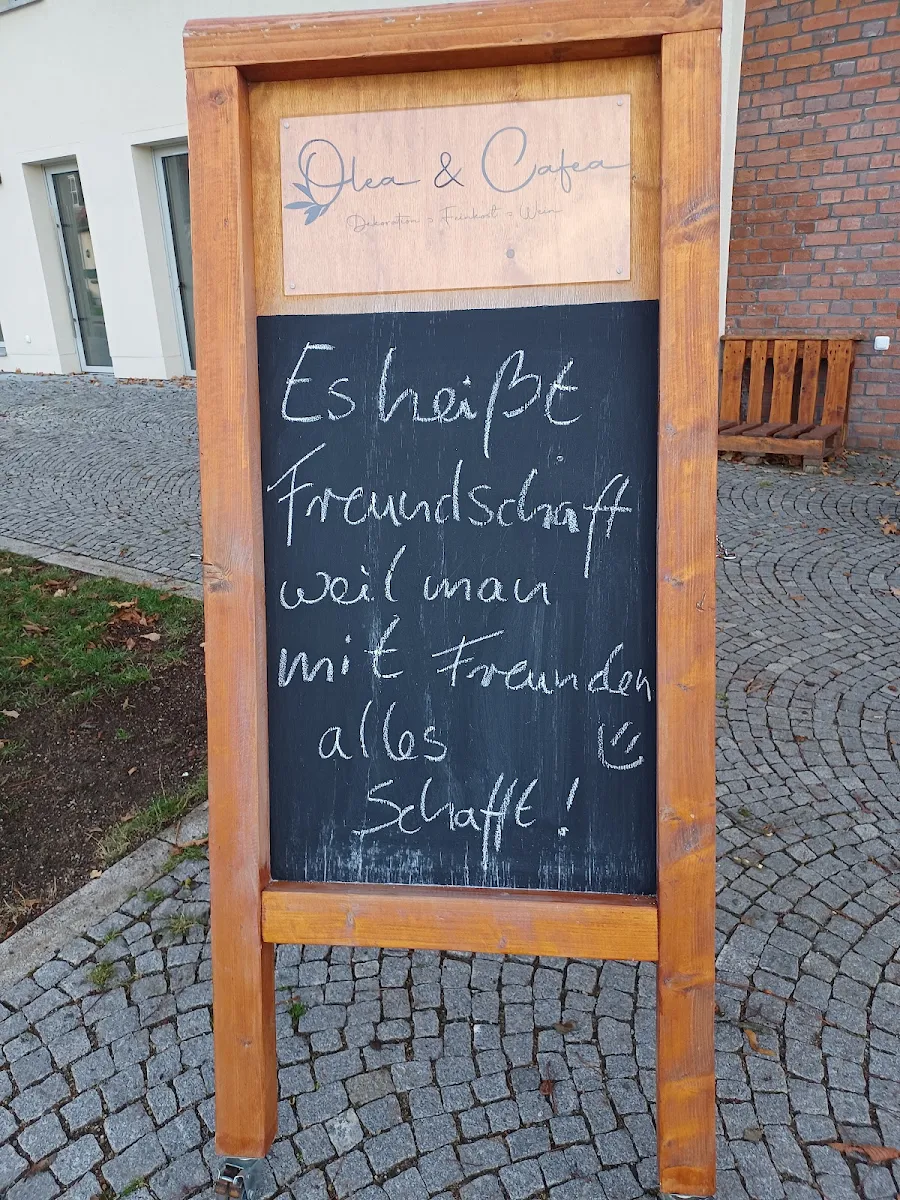 Olea & Cafea
Dekoration • Feinkost • Wein
Es heißt
Freundschaft
weil man
mit Freunden
alles
schafft!